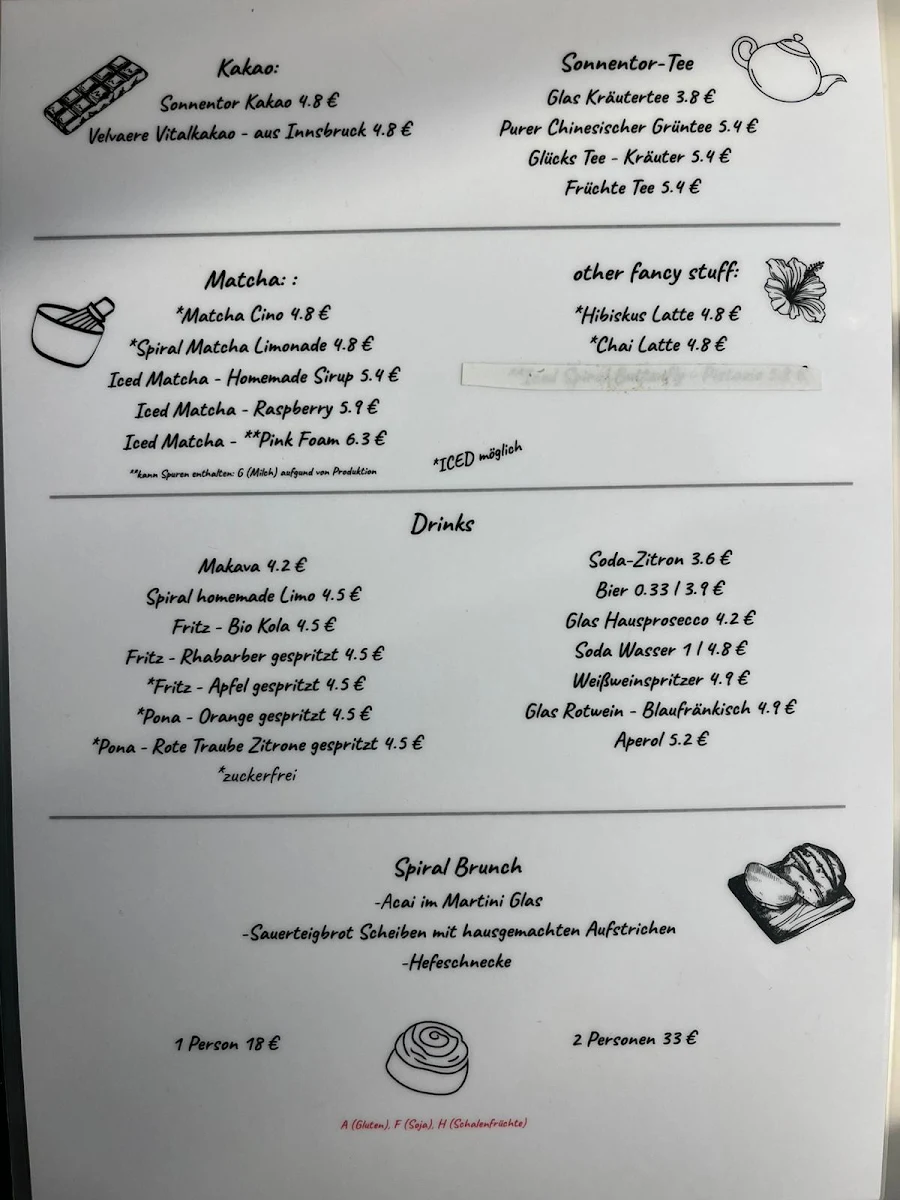 Kakao:
Sonnentor Kakao 4.8 €
Velvaere Vitalkakao - aus Innsbruck 4.8 €
Sonnentor-Tee
Glas Kräutertee 3.8 €
Purer Chinesischer Grüntee 5.4 €
Glücks Tee - Kräuter 5.4 €
Früchte Tee 5.4 €
Matcha: :
*Matcha Cino 4.8 €
*Spiral Matcha Limonade 4.8 €
Iced Matcha - Homemade Sirup 5.4 €
Iced Matcha - Raspberry 5.9 €
Iced Matcha - **Pink Foam 6.3 €
**kann Spuren enthalten: G (Milch) aufgund von Produktion
other fancy stuff:
*Hibiskus Latte 4.8 €
*Chai Latte 4.8 €
*ICED möglich
Drinks
Makava 4.2 €
Spiral homemade Limo 4.5 €
Fritz - Bio Kola 4.5 €
Fritz - Rhabarber gespritzt 4.5 €
*Fritz - Apfel gespritzt 4.5 €
*Pona - Orange gespritzt 4.5 €
*Pona - Rote Traube Zitrone gespritzt 4.5 €
*zuckerfrei
Soda-Zitron 3.6 €
Bier 0.33 l 3.9 €
Glas Hausprosecco 4.2 €
Soda Wasser 1 l 4.8 €
Weißweinspritzer 4.9 €
Glas Rotwein - Blaufränkisch 4.9 €
Aperol 5.2 €
Spiral Brunch
-Acai im Martini Glas
-Sauerteigbrot Scheiben mit hausgemachten Aufstrichen
-Hefeschnecke
1 Person 18 €
2 Personen 33 €
A (Gluten), F (Soja), H (Schalenfrüchte)